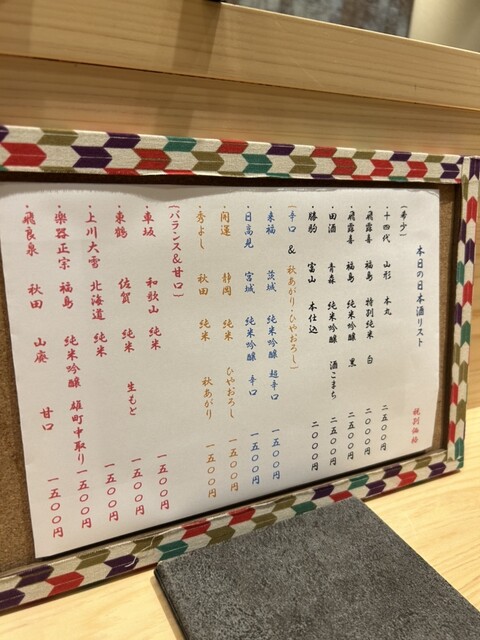 本日の日本酒リスト 税別価格
(希少)
・十四代 山形 本丸 二五〇〇円
・飛露喜 福島 特別純米 白 二〇〇〇円
・飛露喜 福島 純米吟醸 黒 二五〇〇円
・田酒 青森 純米吟醸 酒こまち 二五〇〇円
・勝駒 富山 本仕込 二〇〇〇円
(辛口 & 秋あがり・ひやおろし)
・来福 茨城 純米吟醸 超辛口 一五〇〇円
・日高見 宮城 純米吟醸 辛口 一五〇〇円
・開運 静岡 純米 ひやおろし 一五〇〇円
・秀よし 秋田 純米 秋あがり 一五〇〇円
(バランス&甘口)
・車坂 和歌山 純米 一五〇〇円
・東鶴 佐賀 純米 生もと 一五〇〇円
・上川大雪 北海道 純米 一五〇〇円
・楽器正宗 福島 純米吟醸 雄町中取り 一五〇〇円
・飛良泉 秋田 山廃 甘口 一五〇〇円